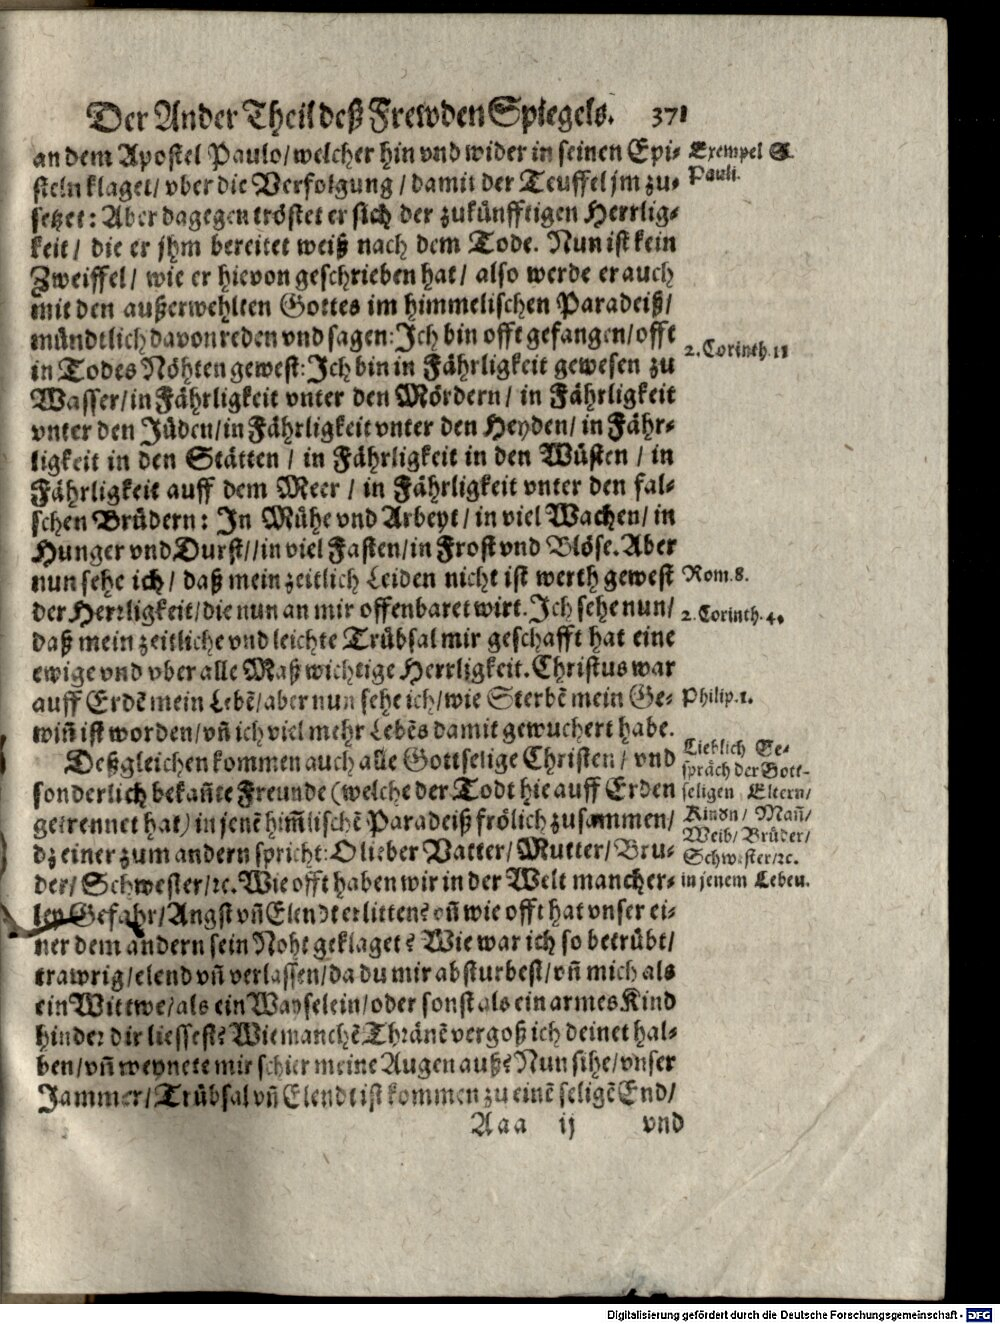 Der Ander Theil deß Frewden Spiegels. 371
an dem Apostel Paulo/ welcher hin vnd wider in seinen Epi-
steln klaget/ vber die Verfolgung/ damit der Teuffel jm zu-
setzet: Aber dagegen tröstet er sich der zukünfftigen Herrlig-
keit/ die er jhm bereitet weiß nach dem Tode. Nun ist kein
Zweiffel/ wie er hievon geschrieben hat/ also werde er auch
mit den außerwehlten Gottes im himmelischen Paradeiß/
mündtlich davon reden vnd sagen: Ich bin offt gefangen/ offt
in Todes Nöhten gewest: Ich bin in Fährligkeit gewesen zu
Wasser/ in Fährligkeit vnter den Mördern/ in Fährligkeit
vnter den Jüden/ in Fährligkeit vnter den Heyden/ in Fähr-
ligkeit in den Stätten/ in Fährligkeit in den Wüsten/ in
Fährligkeit auff dem Meer/ in Fährligkeit vnter den fal-
schen Brüdern: In Mühe vnd Arbeyt/ in viel Wachen/ in
Hunger vnd Durst//in viel Fasten/ in Frost vnd Blöse. Aber
nun sehe ich/ daß mein zeitlich Leiden nicht ist werth gewest
der Herrligkeit/ die nun an mir offenbaret wirt. Ich sehe nun/
daß mein zeitliche vnd leichte Trübsal mir geschafft hat eine
ewige vnd vber alle Maß wichtige Herrligkeit. Christus war
auff Erdẽ mein Lebẽ/ aber nun sehe ich/ wie Sterbẽ mein Ge-
wiñ ist worden/ vñ ich viel mehr Lebẽs damit gewuchert habe.
Deßgleichen kommen auch alle Gottselige Christen/ vnd
sonderlich bekañte Freunde (welche der Todt hie auff Erden
getrennet hat) in jenẽ him̃lischẽ Paradeiß frölich zusammen/
dz einer zum andern spricht: O lieber Vatter/ Mutter/ Bru-
der/ Schwester/ ꝛc. Wie offt haben wir in der Welt mancher-
ley Gefahr/ Angst vñ Elendt erlitten? vñ wie offt hat vnser ei-
ner dem andern sein Noht geklaget? Wie war ich so betrübt/
trawrig/ elend vñ verlassen/ da du mir absturbest/ vñ mich als
ein Wittwe/ als ein Wayselein/ oder sonst als ein armes Kind
hinder dir liessest? Wie manchẽ Thränẽ vergoß ich deinet hal-
ben/ vñ weynete mir schier meine Augen auß? Nun sihe/ vnser
Jammer/ Trübsal vñ Elendt ist kommen zu einẽ seligẽ End/
Aaa ij vnd
Exempel S.
Pauli.
2. Corinth. 11
Rom. 8.
2. Corinth. 4.
Philip. 1.
Lieblich Ge-
spräch der Gott-
seligen Eltern/
Kinder/ Mañ/
Weib/ Brüder/
Schwester/ ꝛc.
in jenem Leben.
Digitalisierung gefördert durch die Deutsche Forschungsgemeinschaft - DFG